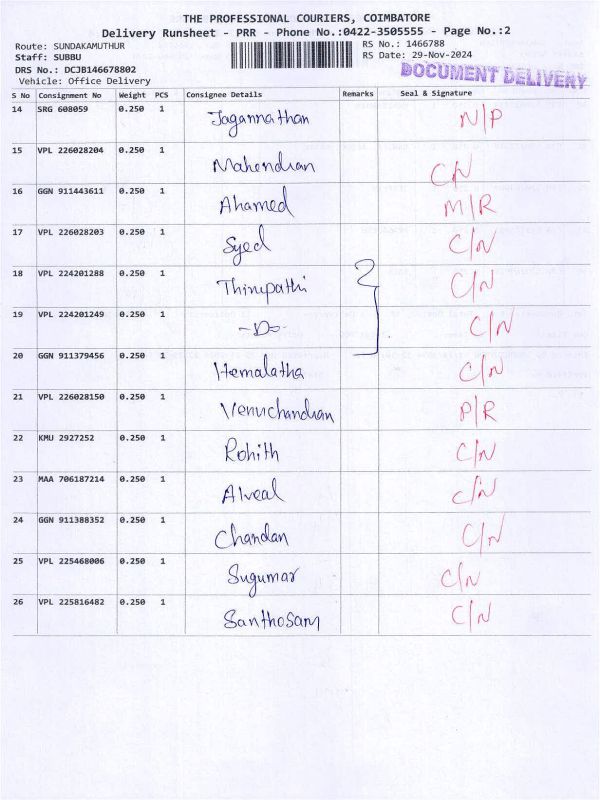 THE PROFESSIONAL COURIERS, COIMBATORE
Delivery Runsheet - PRR - Phone No.:0422-3505555 - Page No.:2
Route: SUNDAKAMUTHUR RS No.: 1466788
Staff: SUBBU RS Date: 29-Nov-2024
DRS No.: DCJB146678802 DOCUMENT DELIVERY
Vehicle: Office Delivery
S No Consignment No Weight PCS Consignee Details Remarks Seal & Signature
14 SRG 608059 0.250 1 Jagannathan N/P
15 VPL 226028204 0.250 1 Mahendran C/N
16 GGN 911443611 0.250 1 Ahamed M/R
17 VPL 226028203 0.250 1 Syed C/N
18 VPL 224201288 0.250 1 Thirupathi 2 C/N
19 VPL 224201249 0.250 1 -Do- C/N
20 GGN 911379456 0.250 1 Hemalatha C/N
21 VPL 226028150 0.250 1 Venuchandran P/R
22 KMU 2927252 0.250 1 Rohith C/N
23 MAA 706187214 0.250 1 Alveal C/N
24 GGN 911388352 0.250 1 Chandan C/N
25 VPL 225468006 0.250 1 Sugumar C/N
26 VPL 225816482 0.250 1 Santhosam C/N